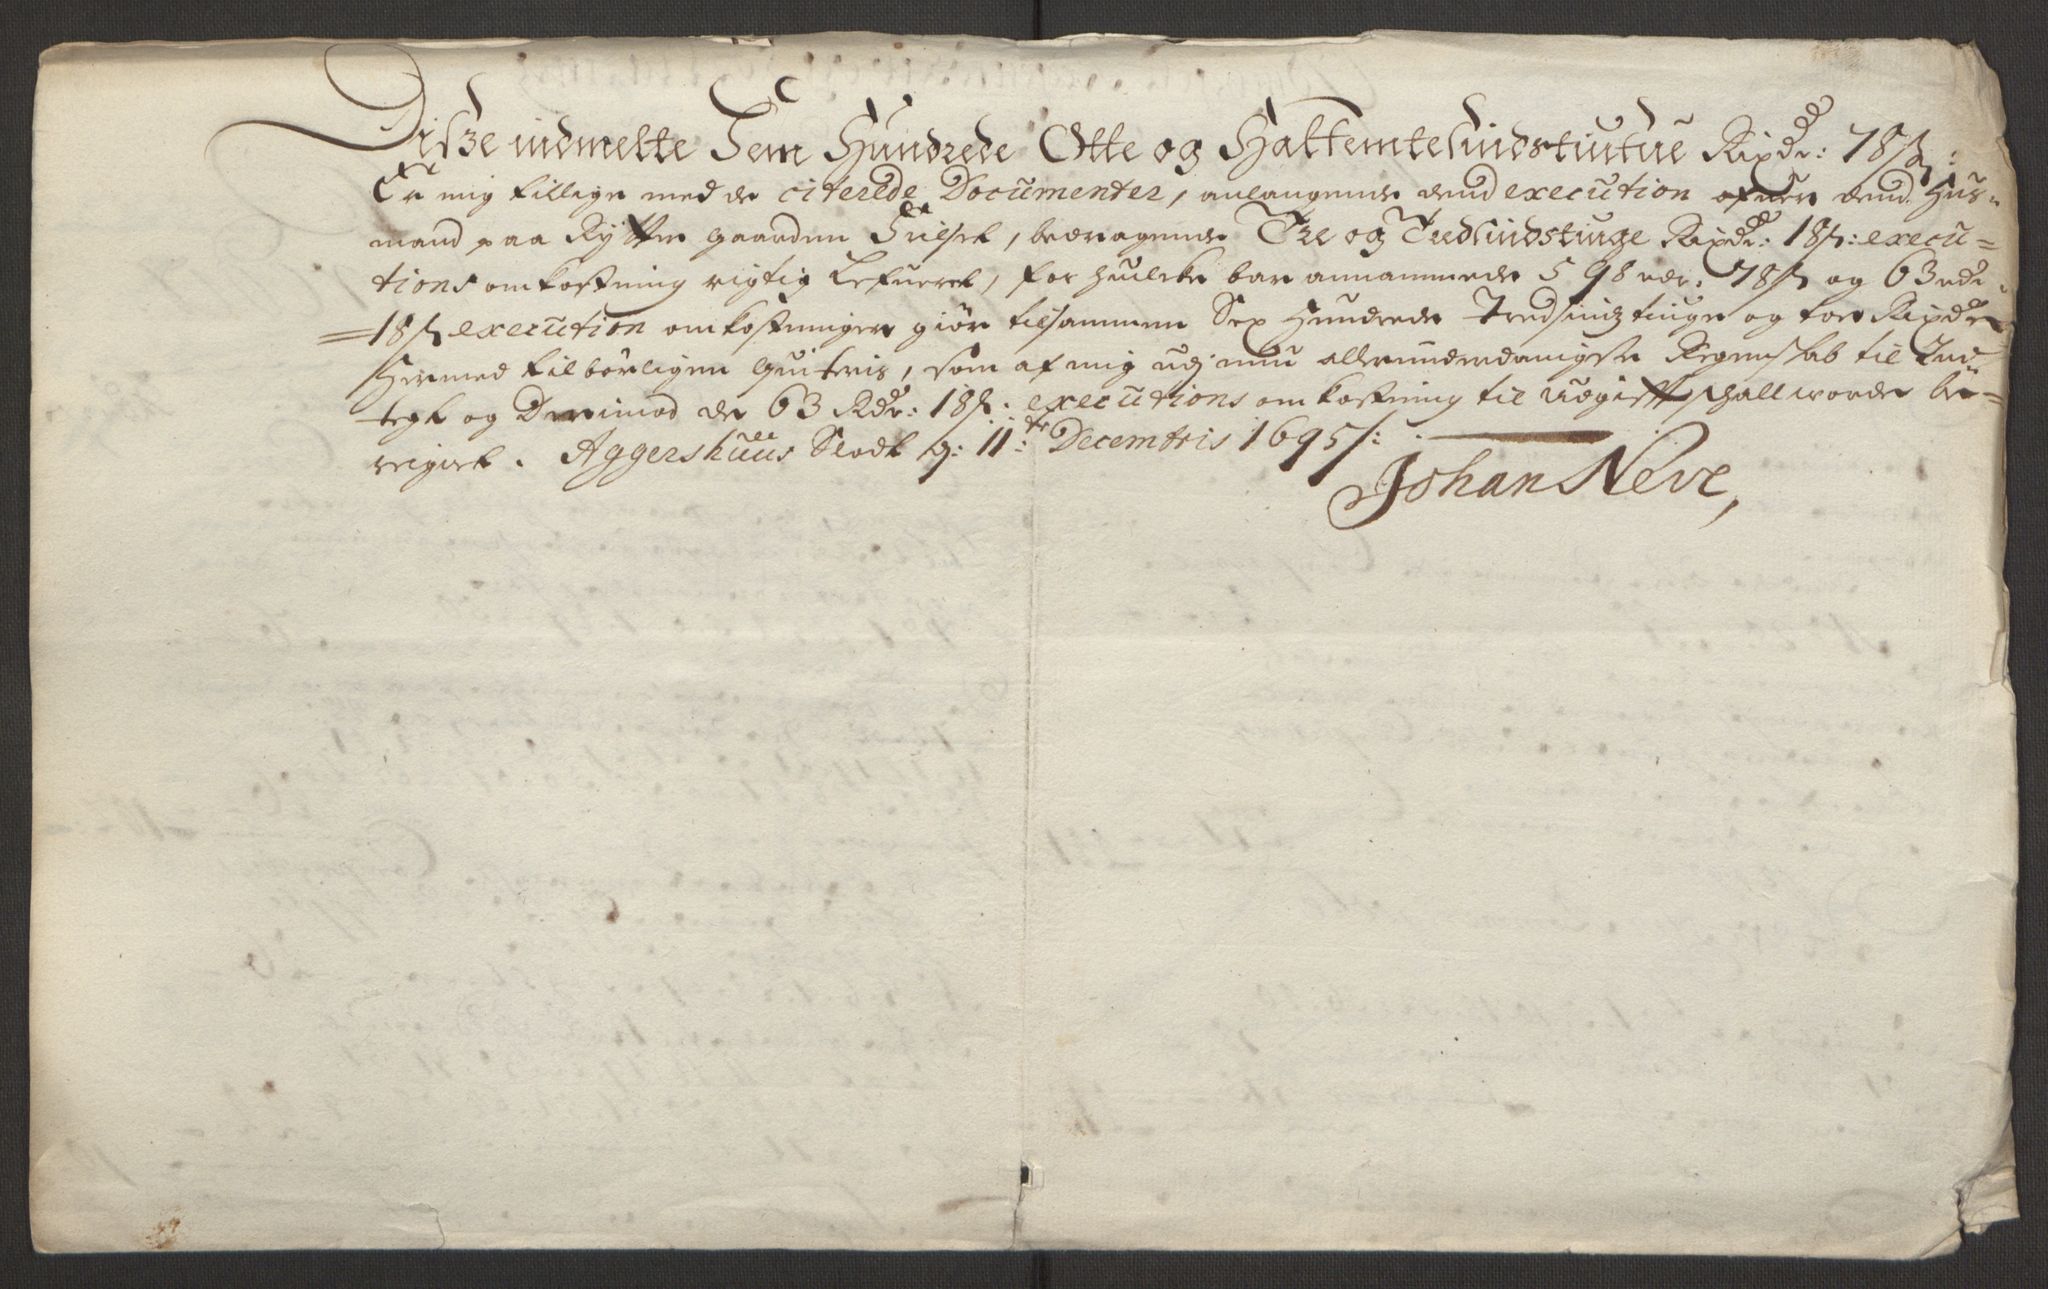 Disze indmelte Fem Hundrede Otte og Halfemtesindstiufue Rixdr: 78 ß:
Er mig tillige med de citerede Documenter, anlangende dend execution ofuer dend Hus-
mand paa Rytter gaarden Fulset, bedragende Tre og Tredsindstiuge Rixdr: 18 ß: execu=
tions omkostning rigtig Lefueret, for huilcke bar annammede 598 rdr: 78 ß og 63 rdr
18 ß execution omkostninger giør tilsammen Sex Hundrede Tredsindztiuge og toe Rixdr
Hermed tilbørligen quiteris, som af mig udj min allerunderdanigste Regenskab til Ind
tegt og Derimod de 63 Rdr: 18 ß: executions omkostning til udgift schall worde be=
reignet. Aggershuus Slodt d: 11te Decembris 1695/:
Johan Neve,